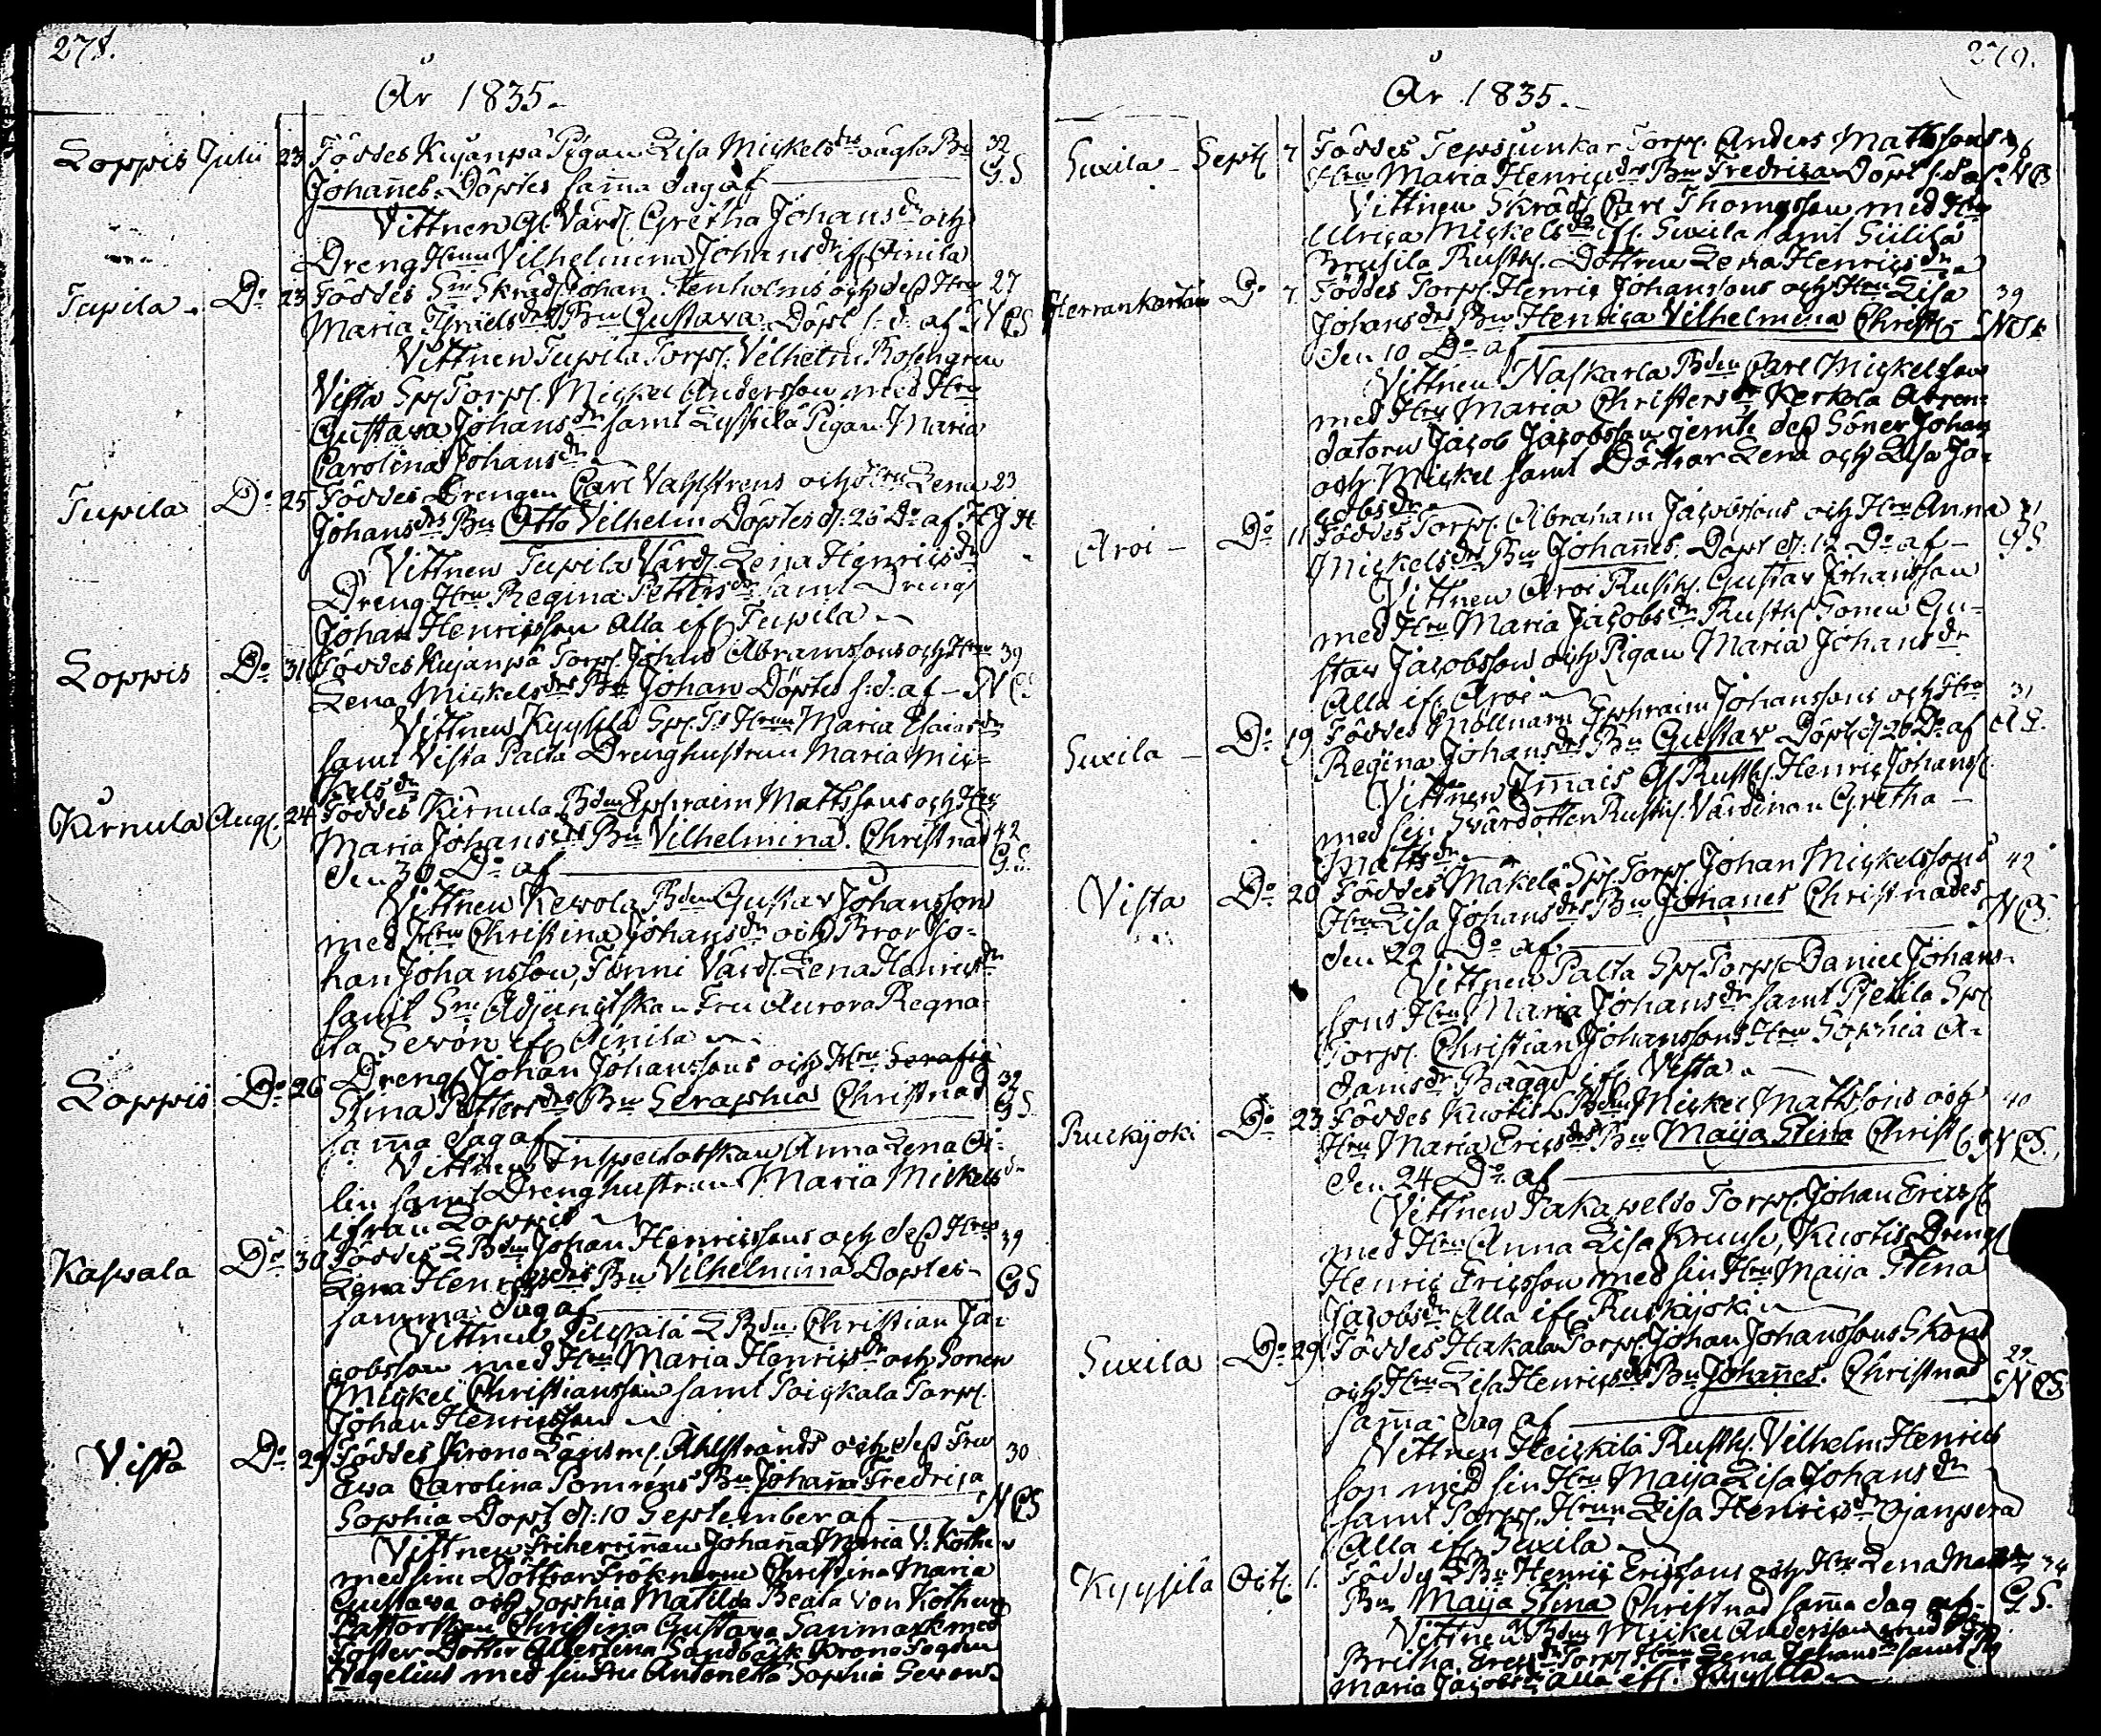 278.
År 1835.
Loppis Julii 23 Föddes Kujanpä Pigan Lisa Mickels drs oägta Bn 32
Johannes. Döptes samma dag af G.S
Vittnen Gl. Värd. Gretha Johans dr och
Dreng Hrun Vilhelmina Johans dr if Ainila
Tupila Do 23 Föddes Sn Skräd. Johan Stenholms och dess Hru 27
Maria Israels drs Bn Gustava Döpt s. d. af NCS
Vittnen Tupila Torp. Vilhelm Rosengren
Vista Sp. Torp. Mickel Andersson med Hru
Gustava Johans dr samt Pigan Maria
Carolina Johans dr
Tupila Do 25 Föddes Drengen Carl Vahlstrens och Hru Lena 23
Johans drs Bn Otto Vilhelm Döptes d. 26 Do af
Vittnen Tupila Värd. Lena Henrics dr
Dreng Hru Regina Petters dr samt Dreng
Johan Henricsson Alla if Tupila
Loppis Do 31 Föddes Kujanpä Torp. Johan Abramssons och Hru 39
Lena Mickels drs Bn Johan Döptes s: d: af NCS
Vittnen Kyyssilä Sp. T. Hrun Maria Esaias dr
samt Vista Palta Drenghustrun Maria Mic-
kels dr
Kirnula Aug. 24 Föddes Kirnula Bden Ephraim Mattssons och Hru
Maria Johans drs Bn Vilhelmina. Christnad 42
den 30 Do af G.S.
Vittnen Kewola Bden Gustav Johansson
med Hru Christina Johans dr och Bror Jo-
han Johansson, Tönni Värd. Lena Henrics dr
samt Adjunctskan Fru Aurora Regna-
ta Sevon if Ainila
Loppis Do 26 Dreng Johan Johanssons och Hru Serafia
Stina Petters drs Bn Seraphia Christnad 32
samma dag af GS
Vittnen Inspectorskan Anna Lena
lin samt Drenghustrun Maria Mickels dr
ifrån Loppis
Kaswala Do 30 Föddes LBden Johan Henricssons och dess Hrus 39
Lena Henrics drs Bn Vilhelmina Döptes GS
samma dag af
Vittnen LBdn. Christian Ja-
cobsson med Hru Maria Henrics dr och Sonen
Mickel Christiansson samt Torp.
Johan Henricsson
Vista Do 29 Föddes Krono Länsm. Ahlstrands och dess Fru 30
Ewa Carolina Bn Johanna Fredrica
Sophia Döpt d: 10 September af NCS
Vittnen Friherrinnan Johanna Maria V. Kothen
med sine Döttrar Fröknarne Christina Maria
Gustava och Sophia Matilda Beata von Kothen
Pastorskan Christina Gustava Sanmark med
Foster Dotter Albertina Sandbäck Krono Fogden
Hegelius med sin Fru Antonetta Sophia Sevon
279.
År 1835.
Suxila Sept. 7 Föddes Torp. Anders Mattssons 36
Hru Maria Henrics drs Bn Fredrica Döpt s. d. af NCS
Vittnen Skräd. Carl Thomasson med Hru
Ulrica Mickels dr if. Suxila samt
Prusila Rusth. Dottren Lena Henrics dr
Herrankartan Do 7. Föddes Torp. Henric Johanssons och Hru Lisa 39
Johans drs Bn Henrica Vilhelmina Christ. NCS
den 10 Do af
Vittnen Naskarla Bden Carl Mickelsson
med Hru Maria Christers dr Kerkola Arren-
datorn Jacob Jacobsson jemte dess Söner Johan
och Mickel samt Döttrar Lena och Lisa Ja-
cobs dr
Aroi Do 11 Föddes Torp. Abraham Jacobssons och Hru Anna 31
Mickels drs Bn Johannes. Döpt d. Do af GS
Vittnen Aroi Rusth. Gustav Johansson
med Hru Maria Jacobs dr Rusth. Sonen Gu-
stav Jacobsson och Pigan Maria Johans dr
Alla if. Aroi
Suxila Do 19 Föddes Möllnarn Ephraim Johanssons och Hru 31
Regina Johans drs Bn Gustav Döpt d 26 Do af
Vittnen Rusth. Henric Johanss.
med sin Svärdotter Rusth. Värdinnan Gretha
Matts dr
Vista Do 20 Föddes Mäkelä Sp. Torp. Johan Mickelssons 42
Hru Lisa Johans drs Bn Johannes Christnades NCS
den 29 Do af
Vittnen Palta Sp. Torp. Daniel Johans-
sons Hru Maria Johans dr samt Pietila Sp.
Torp. Christian Johanssons Hru Sophia A-
dams dr Bagge if. Vista
Ruskijoki Do 23 Föddes Kuotis LBden Mickel Mattssons och 40
Hru Maria Erics drs Bn Maija Stina Christ. NCS.
den 24 Do af
Vittnen Takapeldo Torp. Johan Ericss.
med Hru Anna Lisa Kruuse, Kuotis Dreng
Henric Ericsson med sin Hru Maija Stena
Jacobs dr Alla if. Ruskijoki
Suxila Do 29. Föddes Hakala Torp. Johan Johanssons Skön
och Hru Lisa Henrics drs Bn Johannes. Christnad 29
samma dag af NCS
Vittnen Heickilä Rusth. Vilhelm Henrics
son med sin Hru Maija Lisa Johans dr
samt Torp. Hrun Lisa Henrics dr Ojanperä
Alla if. Suxila
Kyyssilä Oct. 1. Föddes LBn Henric Ericssons och Hru Lena Matts drs 34
Bn Maija Stena Christnad samma dag af G.S.
Vittnen Bden Mickel Andersson med Hru
Britha Erics dr Torp Hrun Lena Johans dr samt
Maria Jacobs dr alla if. Kyyssilä